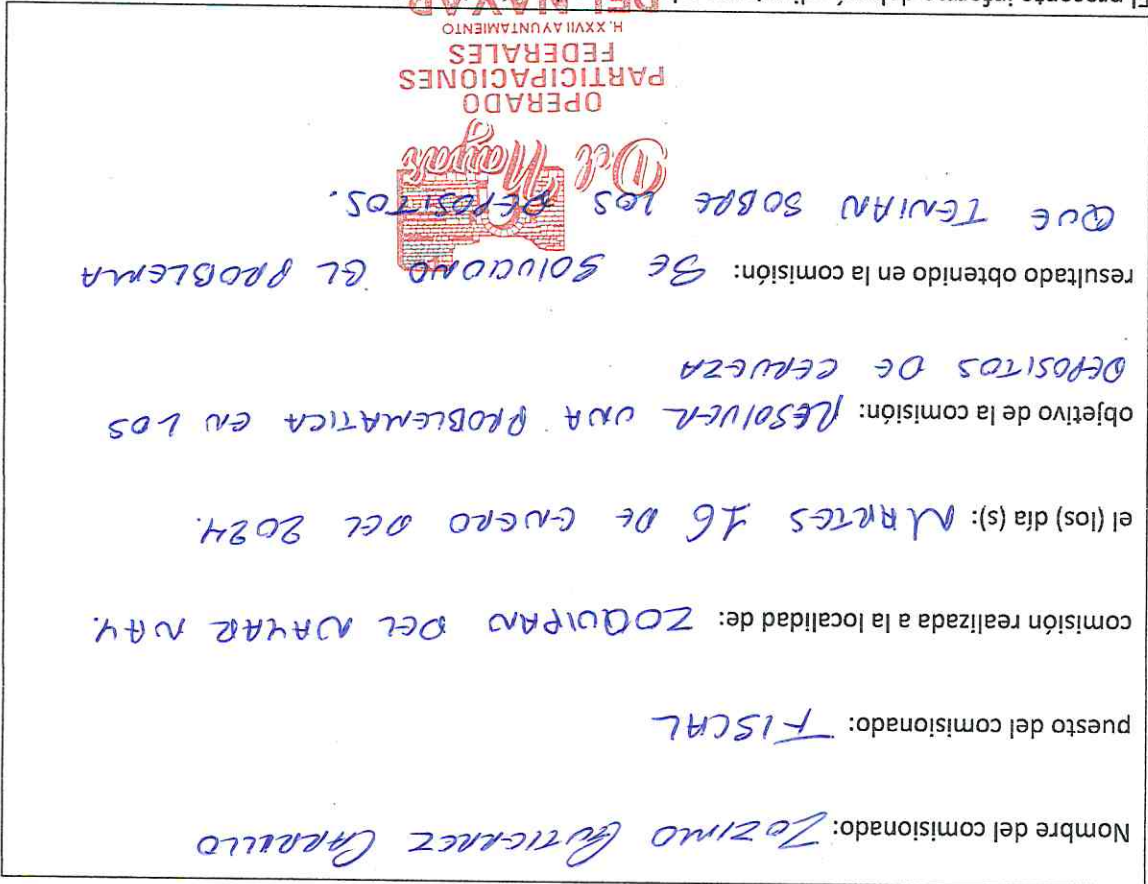 Nombre del comisionado: ZOZIMO GUTIERREZ CARRILLO
puesto del comisionado: FISCAL
comisión realizada a la localidad de: ZOQUIPAN DEL NAYAR NAY.
el (los) día (s): MARTES 16 DE ENERO DEL 2024.
objetivo de la comisión: RESOLVER UNA PROBLEMATICA EN LOS
DEPOSITOS DE CERVEZA
resultado obtenido en la comisión: SE SOLUCIONO EL PROBLEMA
QUE TENIAN SOBRE LOS DEPOSITOS.
Del Nayar
OPERADO
PARTICIPACIONES
FEDERALES
H. XXVII AYUNTAMIENTO
DEL NAYAR
El presente informe